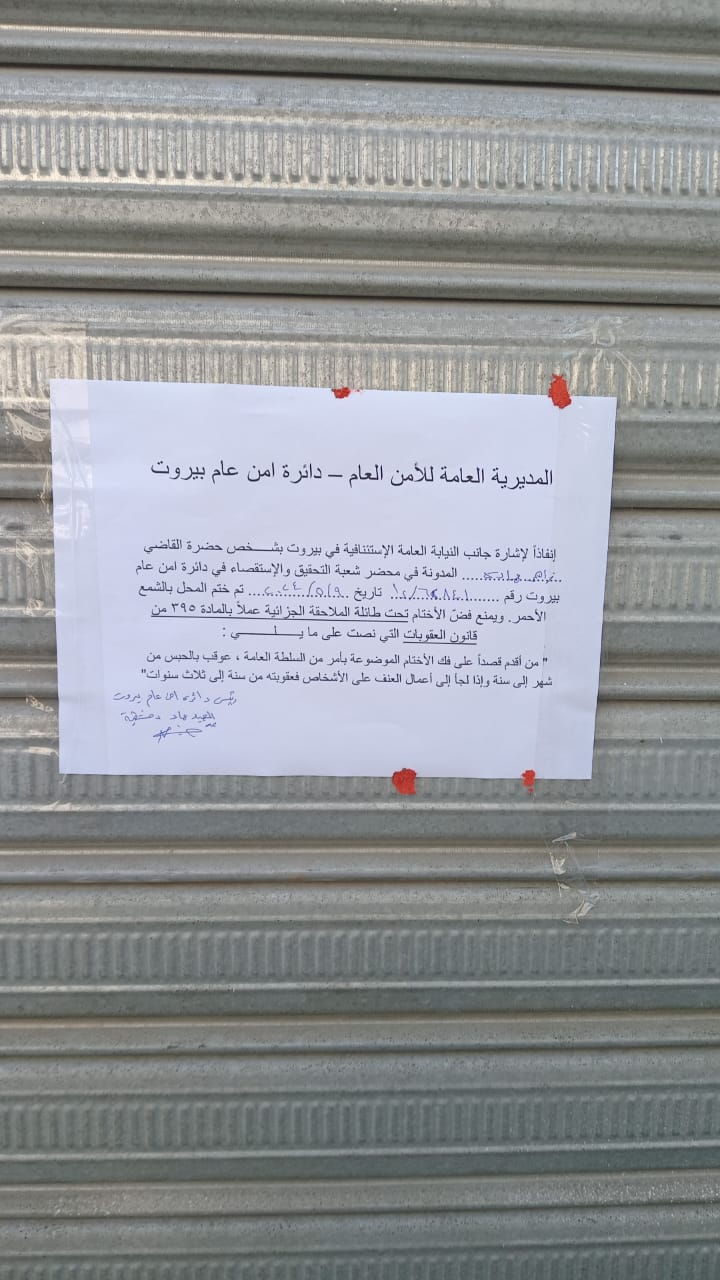 المديرية العامة للأمن العام – دائرة امن عام بيروت
إنفاذاً لاشارة جانب النيابة العامة الإستئنافية في بيروت بشـــــخص حضرة القاضي
المدونة في محضر شعبة التحقيق والإستقصاء في دائرة امن عام
بيروت رقم ........ تاريخ ........ تم ختم المحل بالشمع
الأحمر. ويمنع فضّ الأختام تحت طائلة الملاحقة الجزائية عملاً بالمادة ٣٩٥ من
قانون العقوبات التي نصت على ما يـــلـــــــي :
" من أقدم قصداً على فك الأختام الموضوعة بأمر من السلطة العامة ، عوقب بالحبس من
شهر إلى سنة وإذا لجأ إلى أعمال العنف على الأشخاص فعقوبته من سنة إلى ثلاث سنوات"
رئيس دائرة امن عام بيروت
العميد